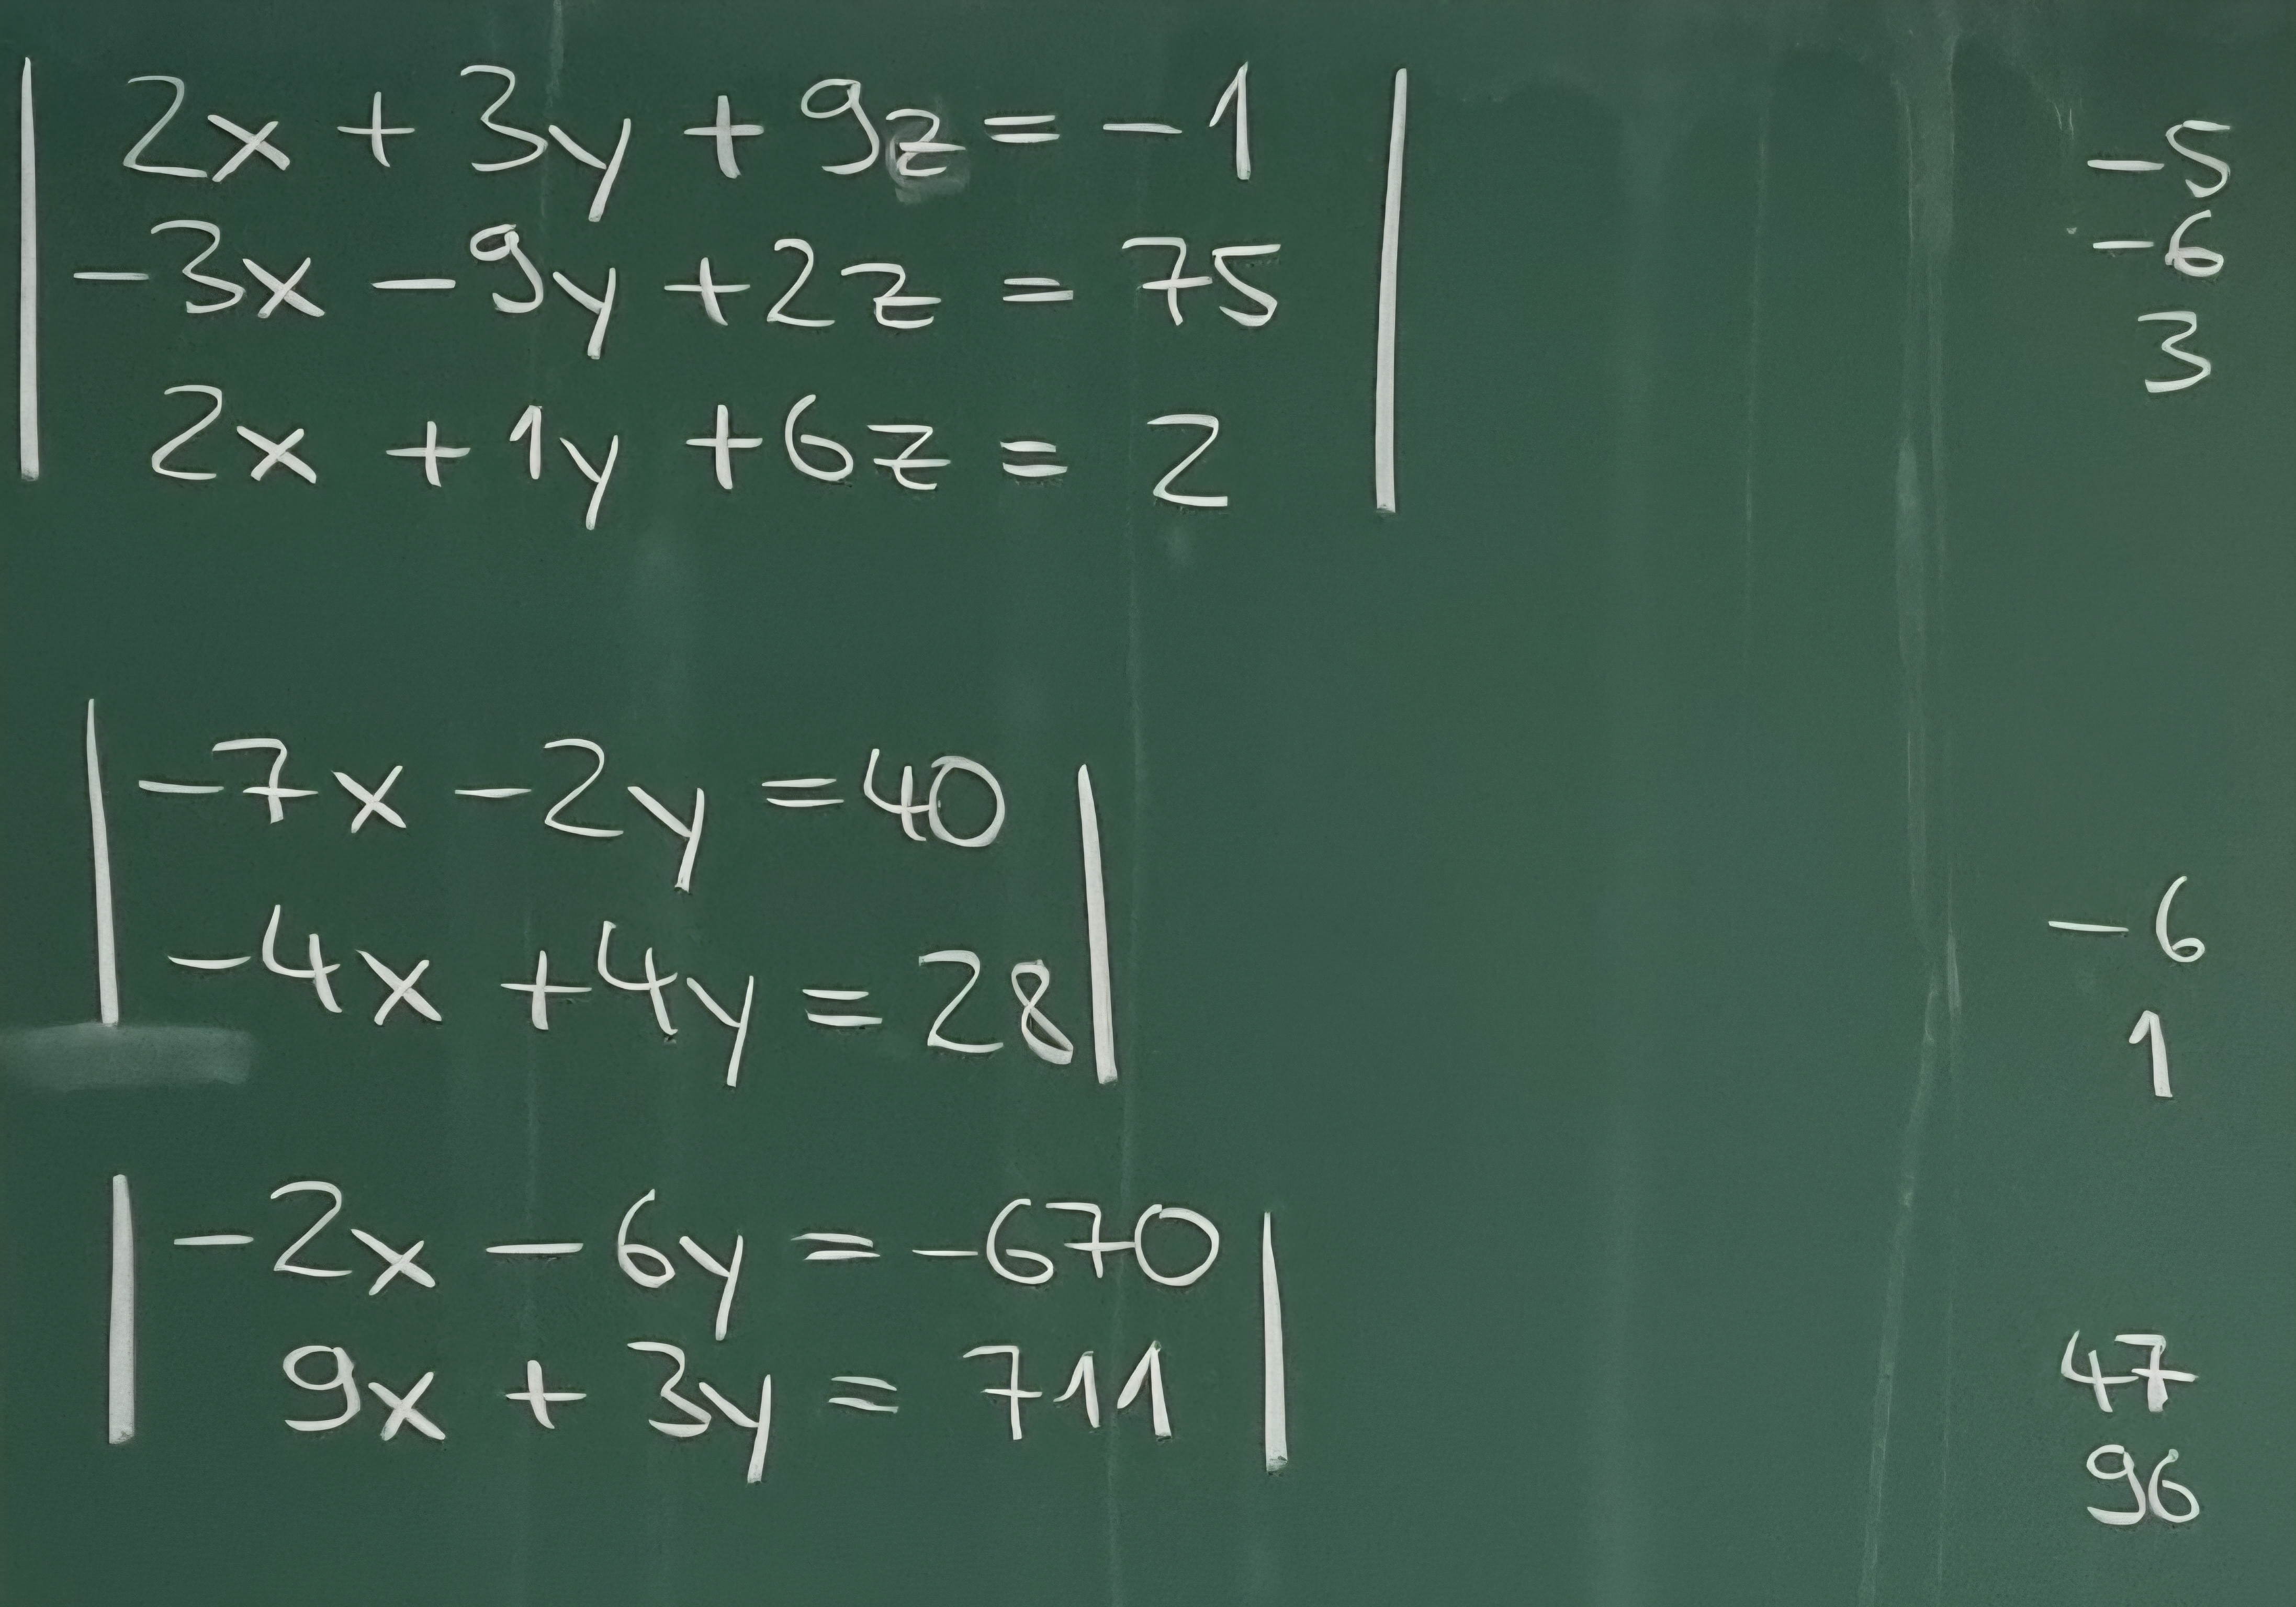 2x + 3y + 9z = -1
-3x - 9y + 2z = 75
2x + 1y + 6z = 2
-5
-6
3
-7x - 2y = 40
-4x + 4y = 28
-6
1
-2x - 6y = -670
9x + 3y = 711
47
96